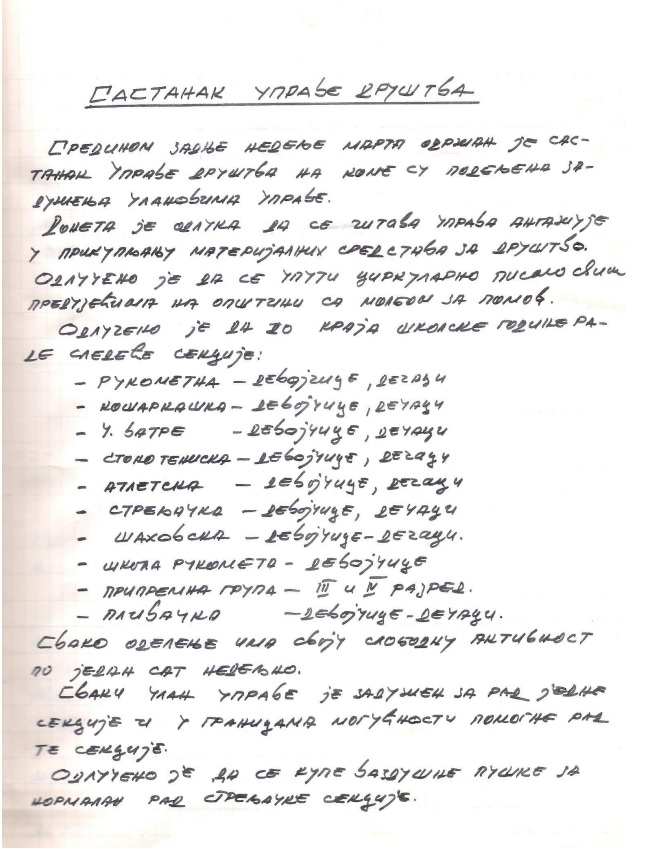 САСТАНАК УПРАВЕ ДРУШТВА
СРЕДИНОМ ЗАДЊЕ НЕДЕЉЕ МАРТА ОДРЖАН ЈЕ САС-
ТАНАК УПРАВЕ ДРУШТВА НА КОМЕ СУ ПОДЕЉЕНА ЗА-
ДУЖЕЊА ЧЛАНОВИМА УПРАВЕ.
ДОНЕТА ЈЕ ОДЛУКА ДА СЕ ЧИТАВА УПРАВА АНГАЖУЈЕ
У ПРИКУПЉАЊУ МАТЕРИЈАЛНИХ СРЕДСТАВА ЗА ДРУШТВО.
ОДЛУЧЕНО ЈЕ ДА СЕ УПУТИ ЦИРКУЛАРНО ПИСМО СВИМ
ПРЕДУЗЕЋИМА НА ОПШТИНИ СА МОЛБОМ ЗА ПОМОЋ.
ОДЛУЧЕНО ЈЕ ДА ДО КРАЈА ШКОЛСКЕ ГОДИНЕ РА-
ДЕ СЛЕДЕЋЕ СЕКЦИЈЕ:
- РУКОМЕТНА - ДЕВОЈЧИЦЕ, ДЕЧАЦИ
- КОШАРКАШКА - ДЕВОЈЧИЦЕ, ДЕЧАЦИ
- Ч. ВАТРЕ - ДЕВОЈЧИЦЕ, ДЕЧАЦИ
- СТОНОТЕНИСКА - ДЕВОЈЧИЦЕ, ДЕЧАЦИ
- АТЛЕТСКА - ДЕВОЈЧИЦЕ, ДЕЧАЦИ
- СТРЕЉАЧКА - ДЕВОЈЧИЦЕ, ДЕЧАЦИ
- ШАХОВСКА - ДЕВОЈЧИЦЕ - ДЕЧАЦИ.
- ШКОЛА РУКОМЕТА - ДЕВОЈЧИЦЕ
- ПРИПРЕМНА ГРУПА - III И IV РАЗРЕД.
- ПЛИВАЧКА - ДЕВОЈЧИЦЕ - ДЕЧАЦИ.
СВАКО ОДЕЛЕЊЕ ИМА СВОЈУ СЛОБОДНУ АКТИВНОСТ
ПО ЈЕДАН САТ НЕДЕЉНО.
СВАКИ ЧЛАН УПРАВЕ ЈЕ ЗАДУЖЕН ЗА РАД ЈЕДНЕ
СЕКЦИЈЕ И У ГРАНИЦАМА МОГУЋНОСТИ ПОМОГНЕ РАД
ТЕ СЕКЦИЈЕ.
ОДЛУЧЕНО ЈЕ ДА СЕ КУПЕ ВАЗДУШНЕ ПУШКЕ ЗА
НОРМАЛАН РАД СТРЕЉАЧКЕ СЕКЦИЈЕ.